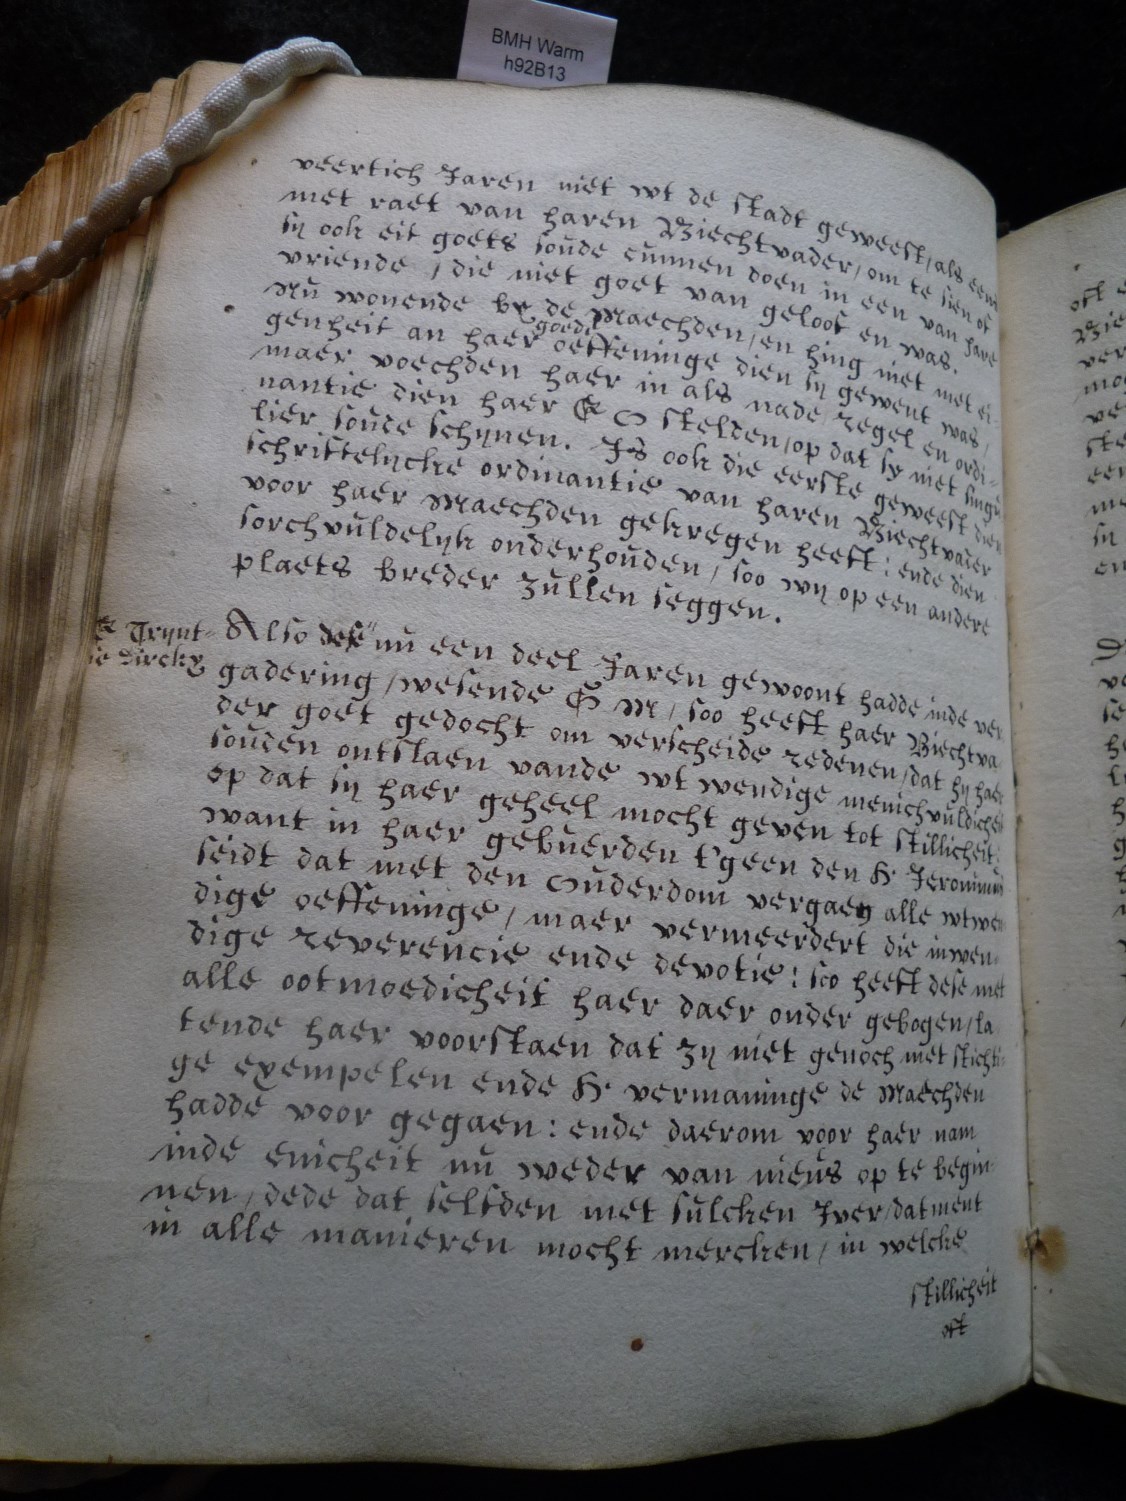 BMH Warm
h92B13
veertich Jaren niet wt de stadt geweest / als eens
met raet van haren Biechtvader / om te sien of
sij ook eit goets soude cunnen doen in een van hare
vriende / die niet goet van geloof en was.
nu wonende by de Maechden / en hing niet met ei-
goede
genheit an haer oeffeninge dien sij gewent was /
maer voechden haer in als nade regel en ordi-
nantie dien haer E O stelden / op dat sy niet singu
lier soude schijnen. Is ook die eerste geweest dien
schriftelijcke ordinantie van haren Biechtvader
voor haer Maechden gekregen heeft : ende dien
sorchvuldelijk onderhouden / soo wij op een andere
plaets breder zullen seggen.
Trijnt-
ie Dircks
Also dese nu een deel Jaren gewoont hadde inde ver
gadering / wesende E M / soo heeft haer Biechtva
der goet gedocht om verscheide redenen / dat hij haer
souden ontslaen vande wtwendige menichvuldicheit
op dat sij haer geheel mocht geven tot stillicheit:
want in haer gebuerden t'geen den H Jeronimus
seidt dat met den Ouderdom vergaen alle wtwen
dige oeffeninge / maer vermeerdert die inwen-
dige reverencie ende devotie : soo heeft dese met
alle ootmoedicheit haer daer onder gebogen / la
tende haer voorstaen dat zij niet genoch met stichti
ge exempelen ende H vermaninge de Maechden
hadde voor gegaen : ende daerom voor haer nam
inde enicheit nu weder van nieus op te begin
nen / dede dat selfden met sulcken Iver / datment
in alle manieren mocht mercken / in welcke
stillicheit
oft